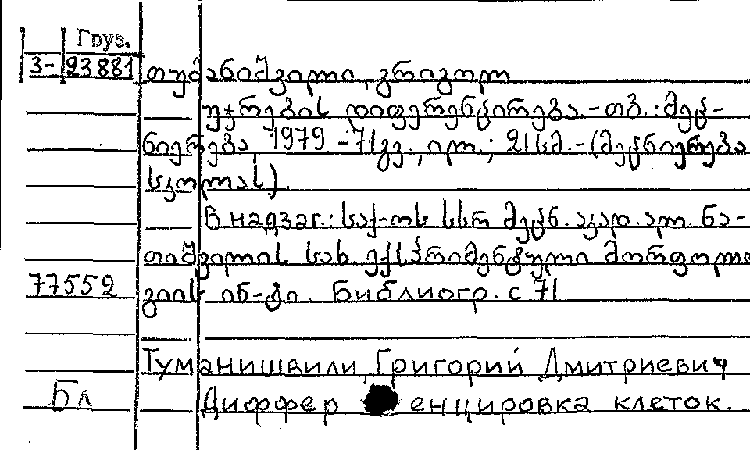 Груз.
3-23881
თუმანიშვილი, გრიგოლ
უჯრედის დიფერენცირება.-თბ.: მეც-
ნიერება 1979 -71გვ., ილ.; 21სმ.-(მეცნიერება
სკოლას).
В надзаг.: საქ-ოს სსრ მეცნ. აკად. ალ. ნა-
თიშვილის სახ. ექსპრიმენტული მორფოლო
77552 გიის ინ-ტი. Библиогр. с 71
Туманишвили, Григорий Дмитриевич
Бл Диффер енцировка клеток.